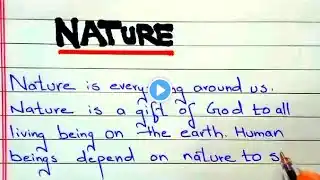 NATURE
Nature is every ng around us.
Nature is a gift of God to all
living being on the earth. Human
beings depend on nature to s